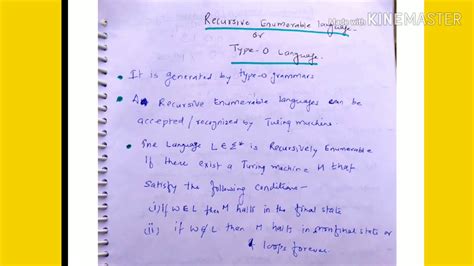 Recursive Enumerable language.
Made with KINEMASTER
or
Type-0 Language.
• It is generated by type-0 grammars
• A Recursive Enumerable languages can be
accepted/recognized by Turing machine.
• The Language L ∈ Σ* is Recursively Enumerable
if there exist a Turing machine M that
satisfy the following conditions-
(i) if W ∈ L then M halts in the final state
(ii) if W ∉ L then M halts in nonfinal state or
loops forever.